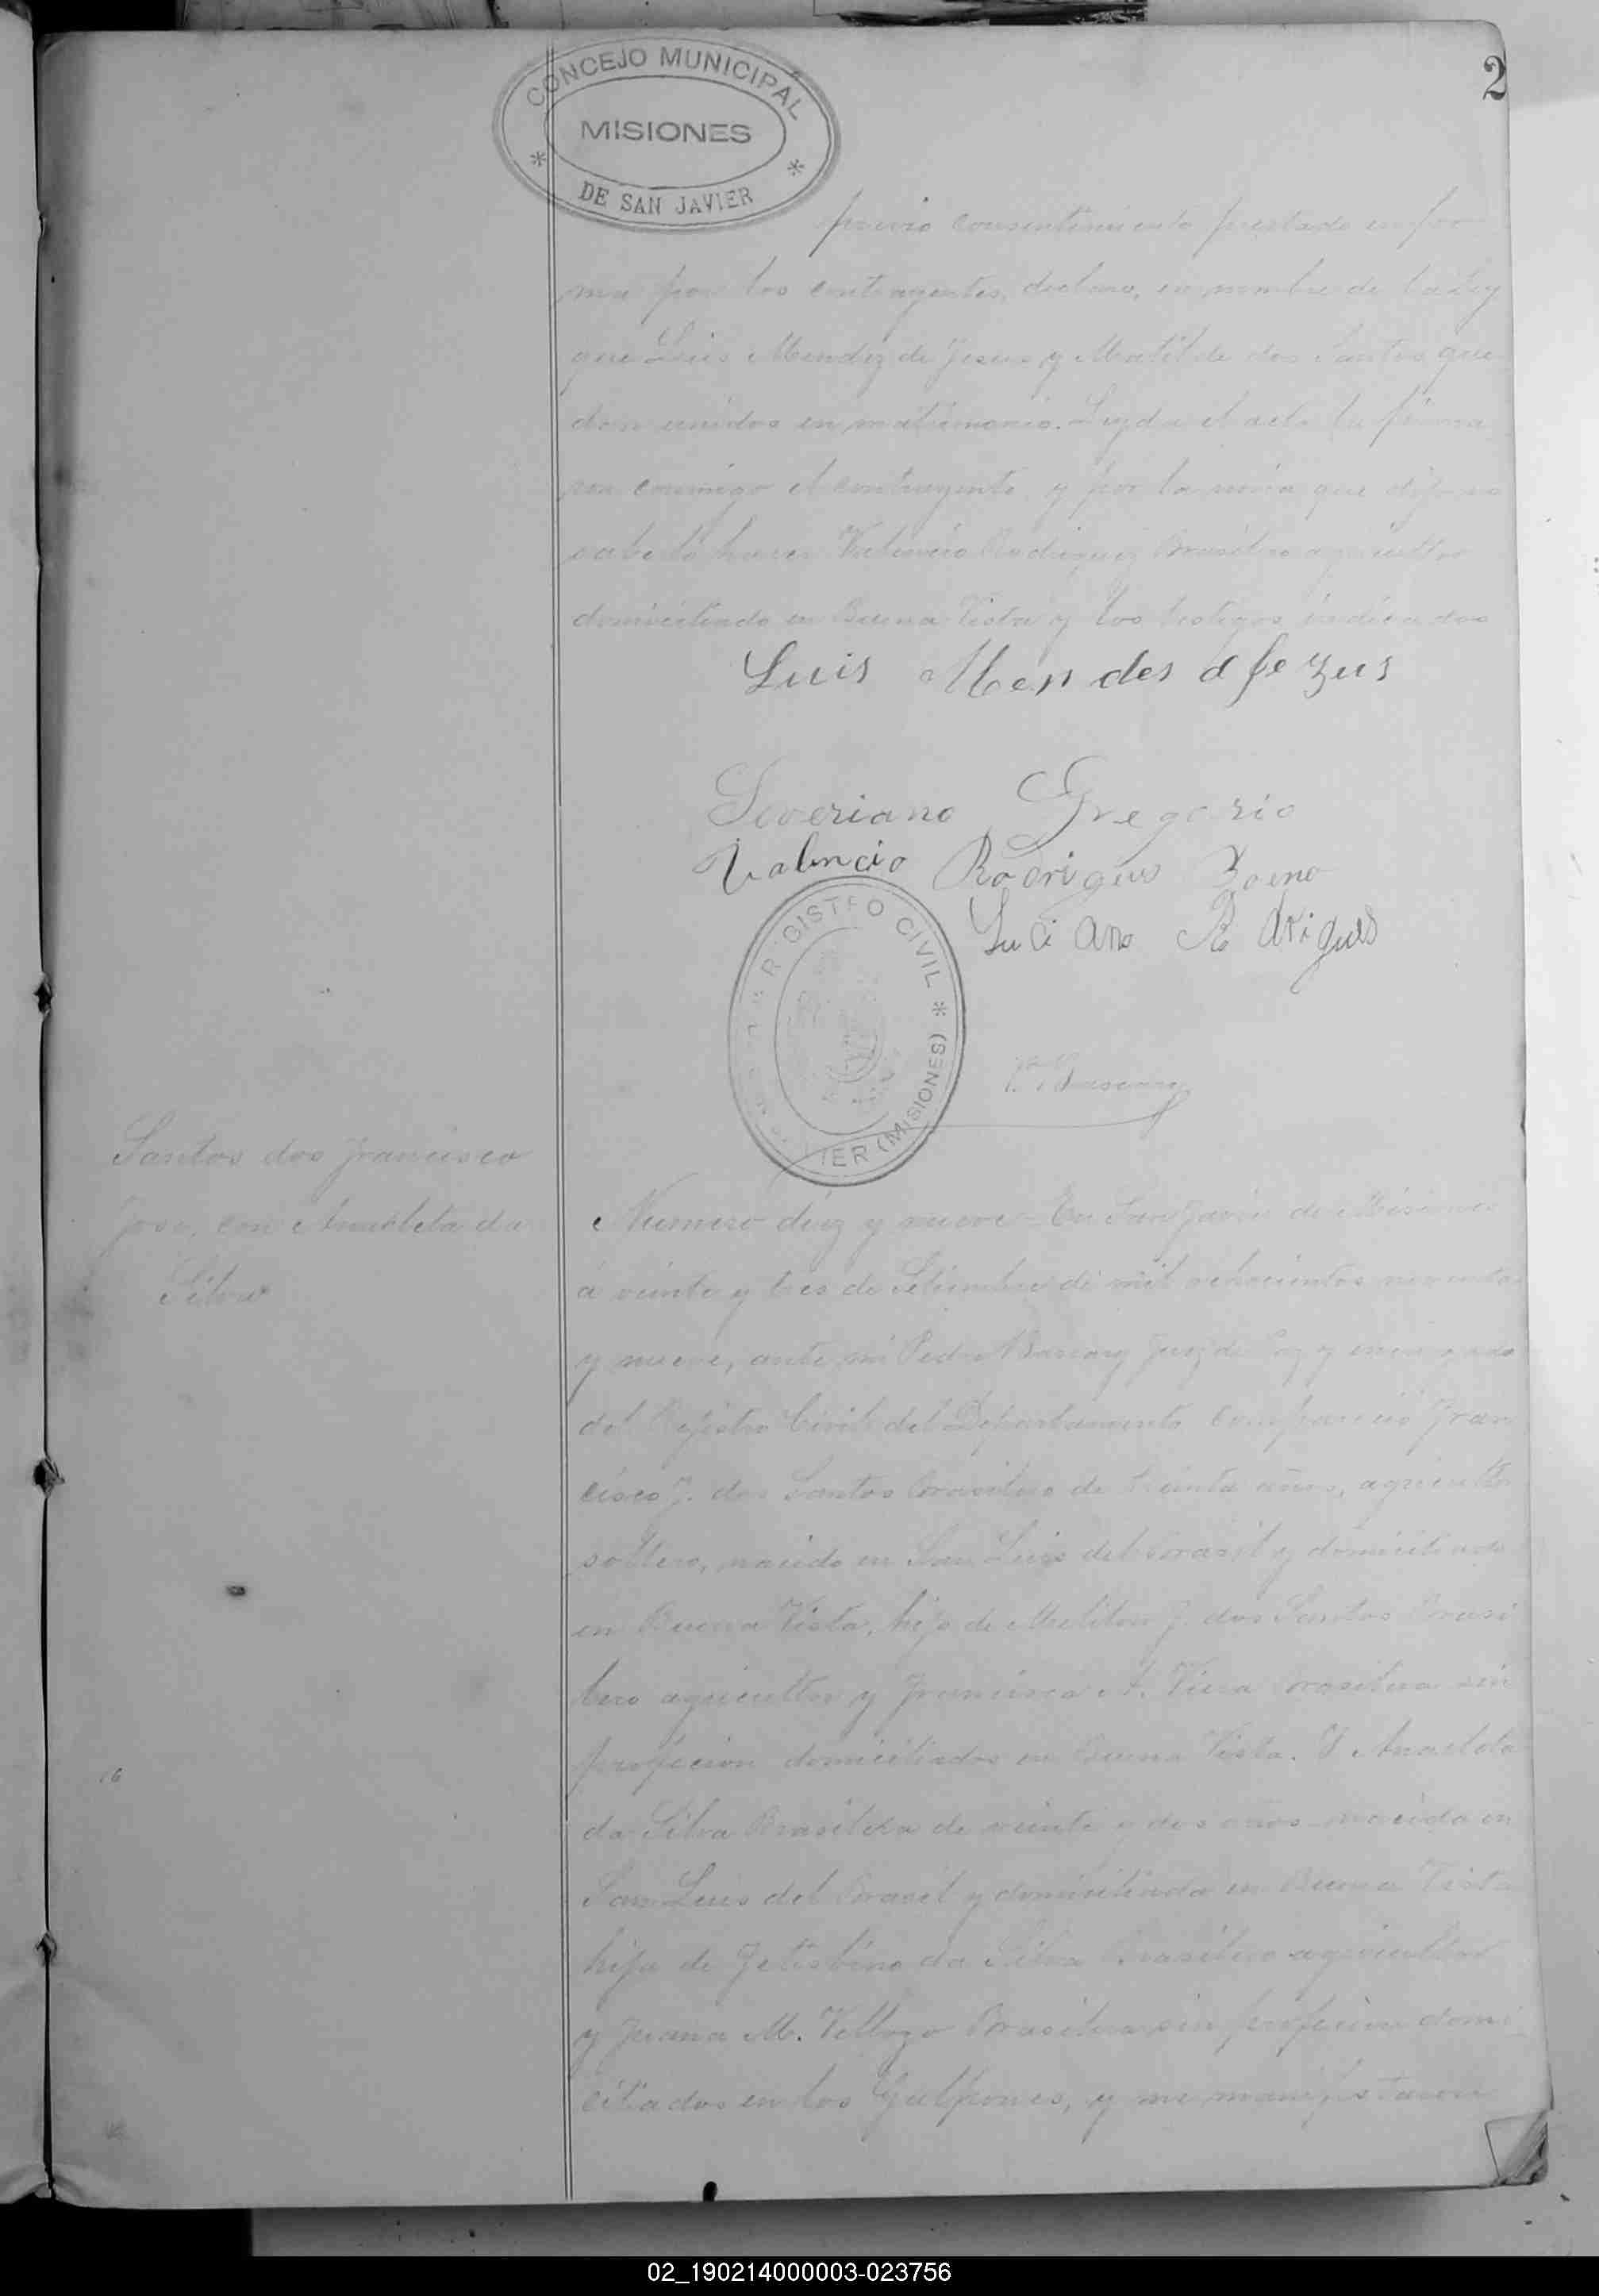 2
CONCEJO MUNICIPAL
MISIONES
DE SAN JAVIER
previo consentimiento prestado en for
ma por los contrayentes, declaro, en nombre de la Ley
que Luis Mendez de Jesus y Matilde dos Santos que
dan unidos en matrimonio. Leyda el acta la firma
ron conmigo el contrayente y por la novia que dijo no
sabe lo hace Valencio Rodriguez Brasilero agricultor
domiciliado en Buena Vista y los testigos indicados
Luis Mendes d Jezus
Severiano Gregorio
Valencio Rodrigues Boeno
Luciano Rodrigues
REGISTRO CIVIL
IER (MISIONES)
Santos dos Francisco
José, con Anacleta da
Silva
Numero diez y nueve - En San Javier de Misiones
á veinte y tres de Setiembre de mil ochocientos noventa
y nueve, ante mi Pedro Juez de Paz y encargado
del Rejistro Civil del Departamento compareció Fran
cisco J. dos Santos brasilero de años, agricultor
soltero, nacido en San Luis del Brasil y domiciliado
en Buena Vista, hijo de Meliton J. dos Santos Brasi
lero agricultor y Francisca A. Viera brasilera sin
profecion domiciliados en Buena Vista. Y Anacleta
da Silva Brasilera de veinte y dos años nacida en
San Luis del Brasil y domiciliada en Buena Vista
hija de da Silva Brasilero agricultor
y Juana M. Vellozo Brasilera sin profecion domi
ciliados en los Galpones, y me manifestaron
16
02_190214000003-023756